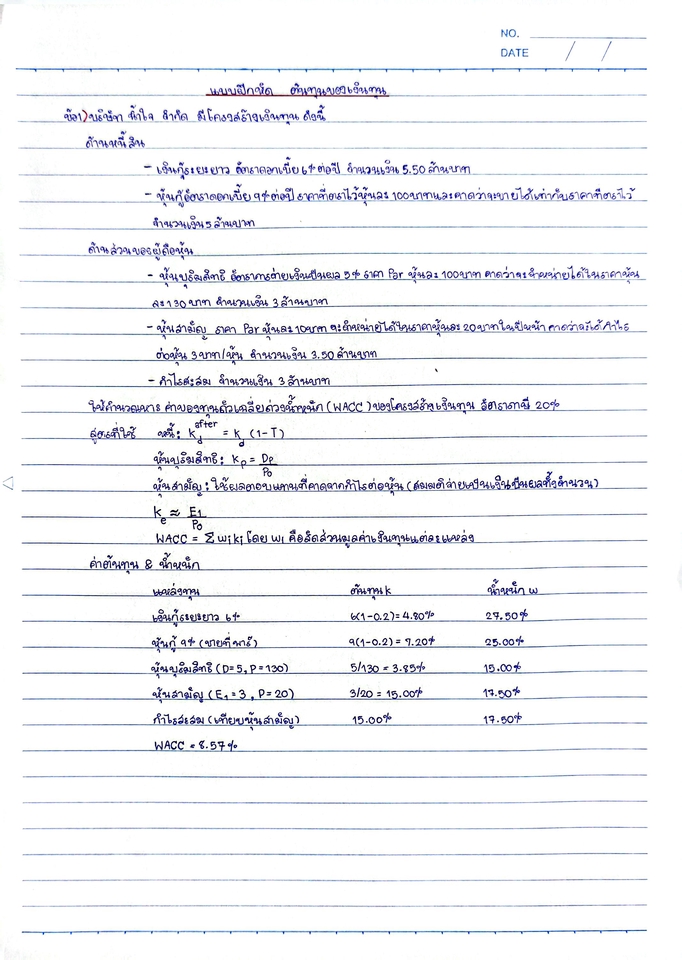 NO.
DATE / /
แบบฝึกหัด ต้นทุนของเงินทุน
ข้อ1) บริษัท น้ำใจ จำกัด มีโครงสร้างเงินทุน ดังนี้
ด้านหนี้สิน
- เงินกู้ระยะยาว อัตราดอกเบี้ย 6% ต่อปี จำนวนเงิน 5.50 ล้านบาท
- หุ้นกู้อัตราดอกเบี้ย 9% ต่อปี ราคาที่ตราไว้หุ้นละ 100 บาทและคาดว่าจะขายได้เท่ากับราคาที่ตราไว้
จำนวนเงิน 5 ล้านบาท
ด้านส่วนของผู้ถือหุ้น
- หุ้นบุริมสิทธิ อัตราการจ่ายเงินปันผล 5% ราคา Par หุ้นละ 100 บาท คาดว่าจะจำหน่ายได้ในราคาหุ้น
ละ 130 บาท จำนวนเงิน 3 ล้านบาท
- หุ้นสามัญ ราคา Par หุ้นละ 10 บาท จะจำหน่ายได้ในราคาหุ้นละ 20 บาทในปีหน้า คาดว่าจะได้กำไร
ต่อหุ้น 3 บาท/หุ้น จำนวนเงิน 3.50 ล้านบาท
- กำไรสะสม จำนวนเงิน 3 ล้านบาท
ให้คำนวณหา ค่าของทุนถัวเฉลี่ยถ่วงน้ำหนัก (WACC) ของโครงสร้างเงินทุน อัตราภาษี 20%
สูตรที่ใช้ หนี้: K_d^after = K_d (1-T)
หุ้นบุริมสิทธิ: Kp = Dp/P0
หุ้นสามัญ: ใช้ผลตอบแทนที่คาดจากกำไรต่อหุ้น (สมมติจ่ายเป็นเงินปันผลทั้งจำนวน)
Ke ≈ E1/P0
WACC = Σ wiki โดย wi คือสัดส่วนมูลค่าเงินทุนแต่ละแหล่ง
ค่าต้นทุน & น้ำหนัก
แหล่งทุน ต้นทุน k น้ำหนัก w
เงินกู้ระยะยาว 6% 6(1-0.2) = 4.80% 27.50%
หุ้นกู้ 9% (ขายที่พาร์) 9(1-0.2) = 7.20% 25.00%
หุ้นบุริมสิทธิ (D=5, P=130) 5/130 = 3.85% 15.00%
หุ้นสามัญ (E1=3, P=20) 3/20 = 15.00% 17.50%
กำไรสะสม (เทียบหุ้นสามัญ) 15.00% 17.50%
WACC = 8.57%